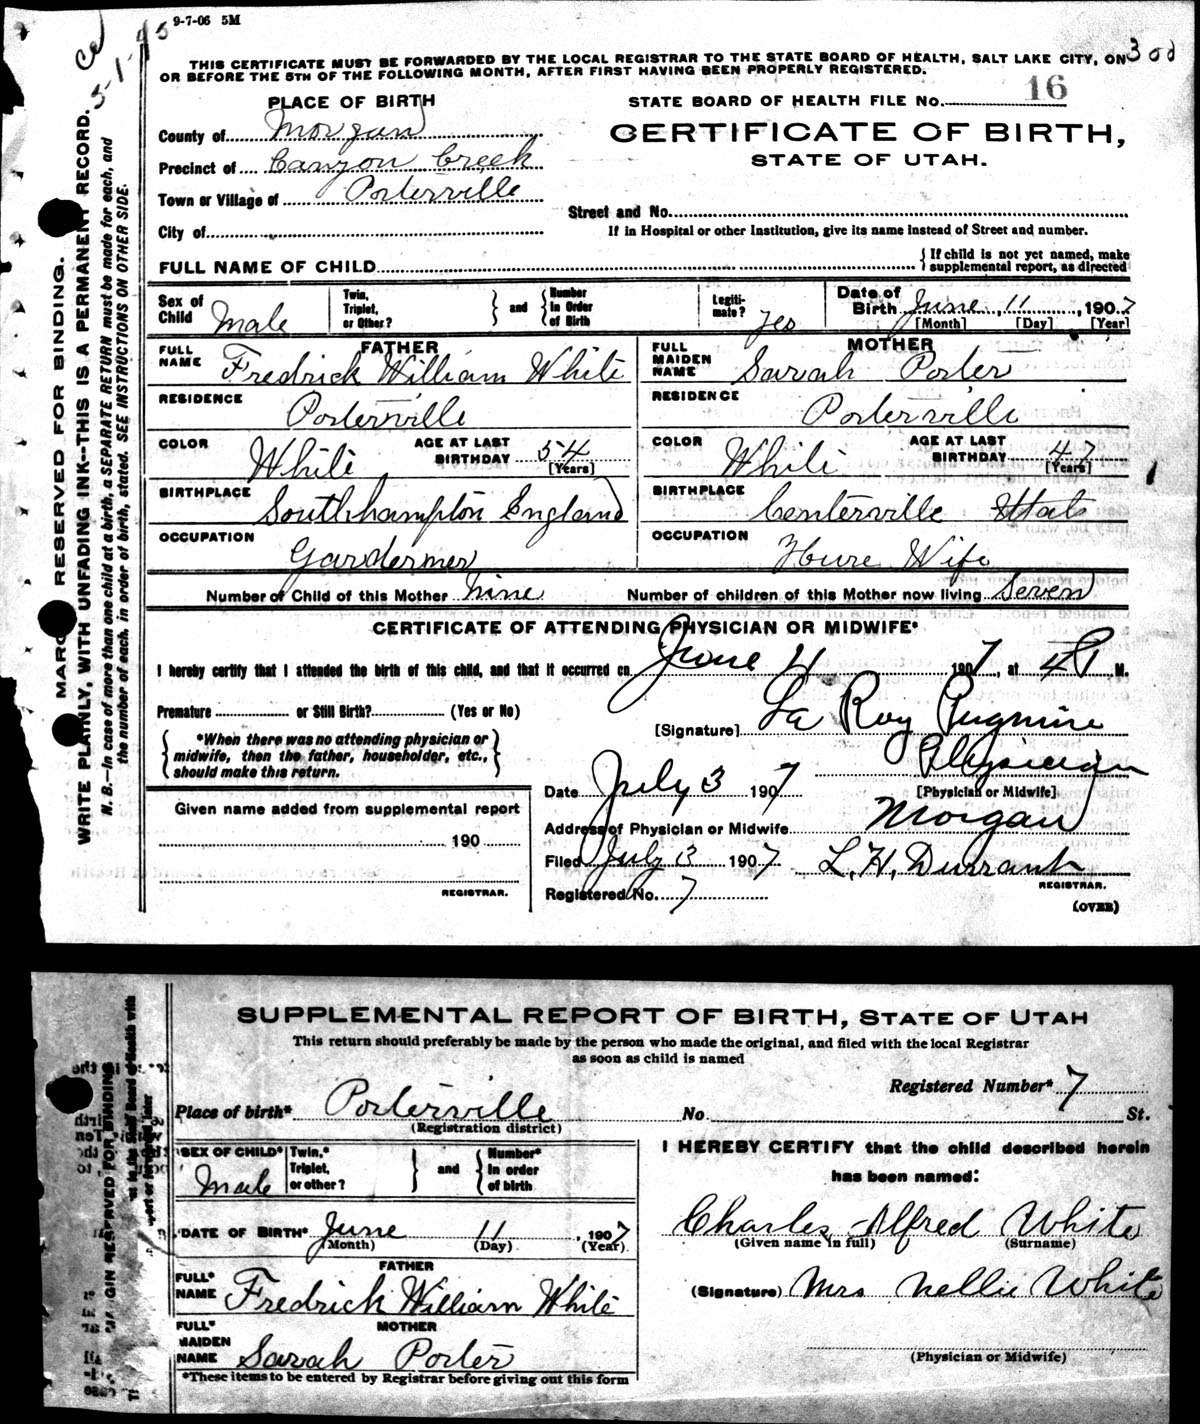 9-7-06 5M
THIS CERTIFICATE MUST BE FORWARDED BY THE LOCAL REGISTRAR TO THE STATE BOARD OF HEALTH, SALT LAKE CITY, ON
OR BEFORE THE 5TH OF THE FOLLOWING MONTH, AFTER FIRST HAVING BEEN PROPERLY REGISTERED.
300
PLACE OF BIRTH
STATE BOARD OF HEALTH FILE No. 16
County of Morgan
CERTIFICATE OF BIRTH,
STATE OF UTAH.
Precinct of Canyon Creek
Town or Village of Porterville
Street and No.
City of
If in Hospital or other Institution, give its name instead of Street and number.
FULL NAME OF CHILD
If child is not yet named, make
supplemental report, as directed
Sex of Child Male
Twin, Triplet, or Other? and Number in Order of Birth
Legitimate? Yes
Date of Birth June 11, 1907
[Month] [Day] [Year]
FATHER
FULL NAME Fredrick William White
MOTHER
FULL MAIDEN NAME Sarah Porter
RESIDENCE Porterville
RESIDENCE Porterville
COLOR White AGE AT LAST BIRTHDAY 54 [Years]
COLOR White AGE AT LAST BIRTHDAY 47 [Years]
BIRTHPLACE Southhampton England
BIRTHPLACE Centerville Utah
OCCUPATION Gardermer
OCCUPATION House Wife
Number of Child of this Mother Nine
Number of children of this Mother now living Seven
CERTIFICATE OF ATTENDING PHYSICIAN OR MIDWIFE*
I hereby certify that I attended the birth of this child, and that it occurred on June 11 1907, at 4 P M.
Premature or Still Birth? (Yes or No)
[Signature] La Roy Pugmire
Physician
[Physician or Midwife]
*When there was no attending physician or
midwife, then the father, householder, etc.,
should make this return.
Date July 3 1907
Address of Physician or Midwife Morgan
Given name added from supplemental report
190
REGISTRAR.
Filed July 3 1907 L. H. Durrant
REGISTRAR.
Registered No. 7
(OVER)
MARGIN RESERVED FOR BINDING.
WRITE PLAINLY, WITH UNFADING INK--THIS IS A PERMANENT RECORD.
N. B.--In case of more than one child at a birth, a SEPARATE RETURN must be made for each, and
the number of each, in order of birth, stated. SEE INSTRUCTIONS ON OTHER SIDE.
SUPPLEMENTAL REPORT OF BIRTH, STATE OF UTAH
This return should preferably be made by the person who made the original, and filed with the local Registrar
as soon as child is named
Registered Number* 7
Place of birth* Porterville No St.
(Registration district)
SEX OF CHILD* Male
Twin,* Triplet, or other? and Number* in order of birth
I HEREBY CERTIFY that the child described herein
has been named:
DATE OF BIRTH* June 11, 1907
(Month) (Day) (Year)
Charles Alfred White
(Given name in full) (Surname)
FATHER
FULL* NAME Fredrick William White
(Signature) Mrs Nellie White
MOTHER
FULL* MAIDEN NAME Sarah Porter
(Physician or Midwife)
*These items to be entered by Registrar before giving out this form
MARGIN RESERVED FOR BINDING